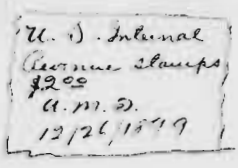 U. S. Internal
Revenue Stamps
$2.00
U. M. S.
12/26/1899